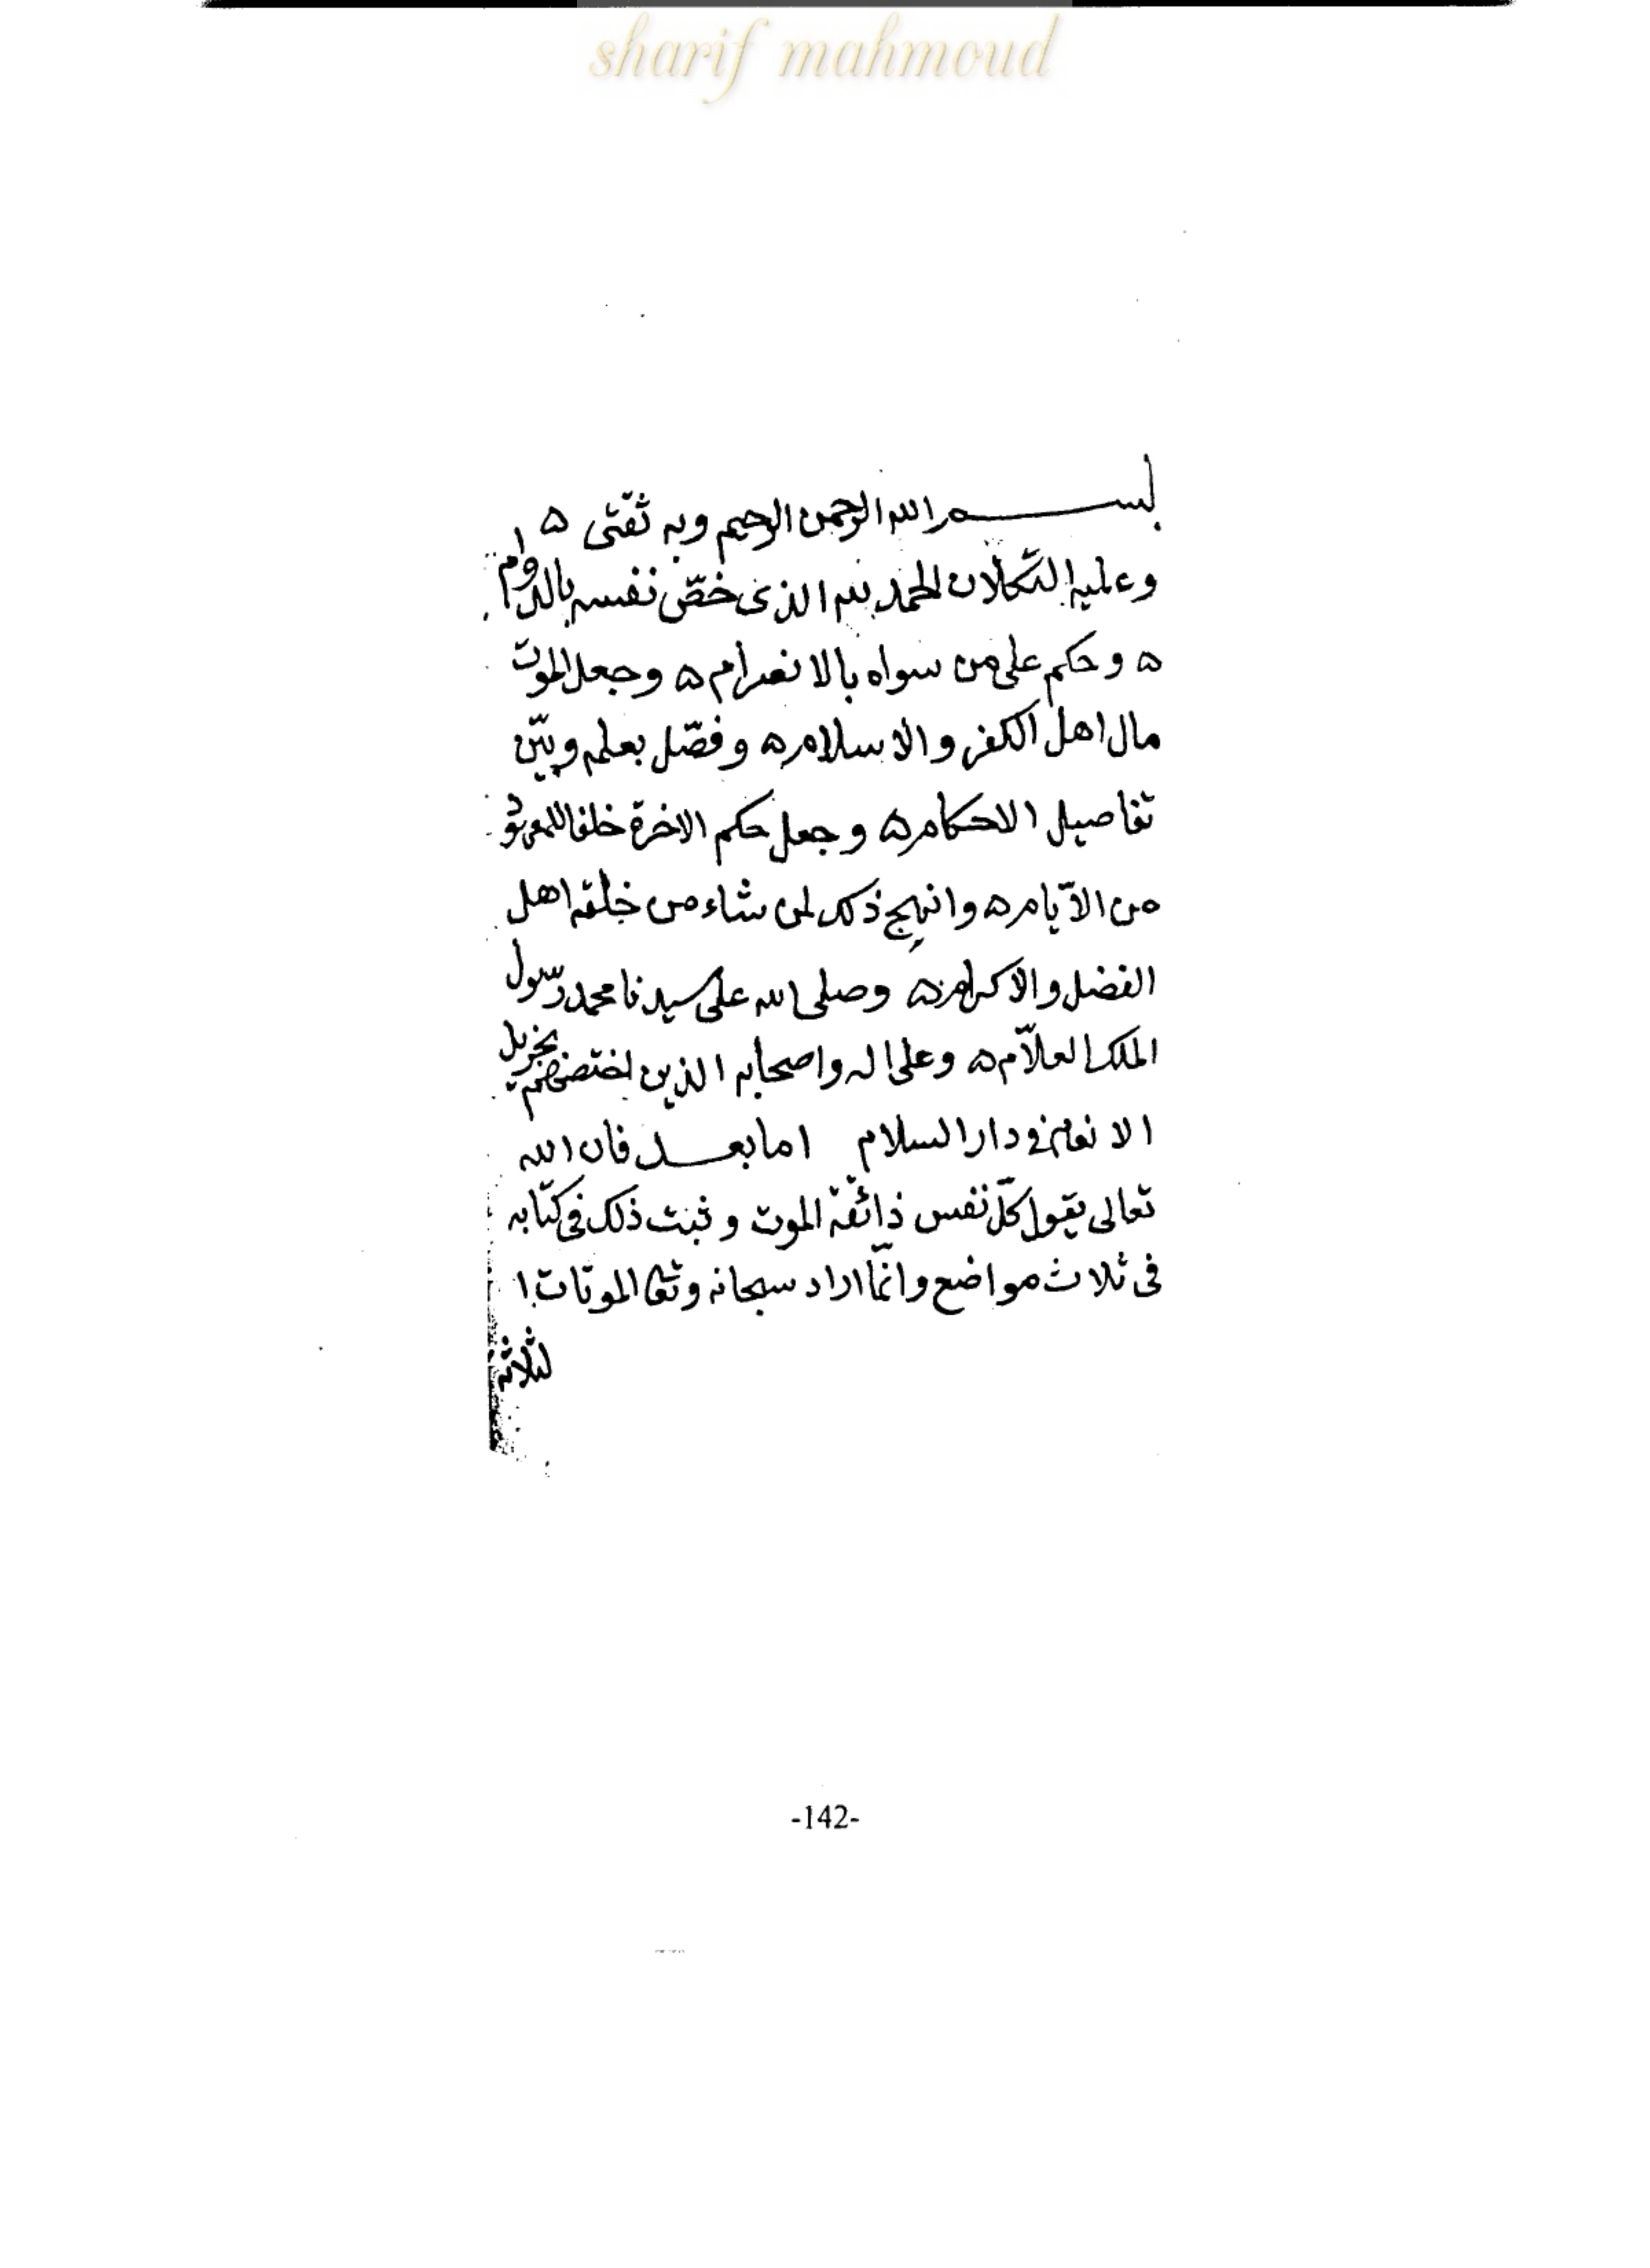 sharif mahmoud
بسم الله الرحمن الرحيم وبه ثقتى ه
وعليه التكلان الحمد لله الذى خصّ نفسه بالدوام
ه وحكم على من سواه بالانصرام ه وجعل الموت
مال اهل الكفر والاسلام ه وفصّل بعلمه وبيّن
تفاصيل الاحكام ه وجعل حكم الاخرة خلفا
من الايّام ه وانهج ذلك لمن شاء من خلقه اهل
الفضل والاكرام ه وصلى الله على سيدنا محمد رسول
الملك العلاّم ه وعلى اله واصحابه الذين اختصهم بجزيل
الانعام فى دار السلام اما بعد فان الله
تعالى يقول كلّ نفس ذائقة الموت و ثبت ذلك فى كتابه
فى ثلاث مواضع وانمّا اراد سبحانه وتعالى الموتات ا
لثلاثه
-142-